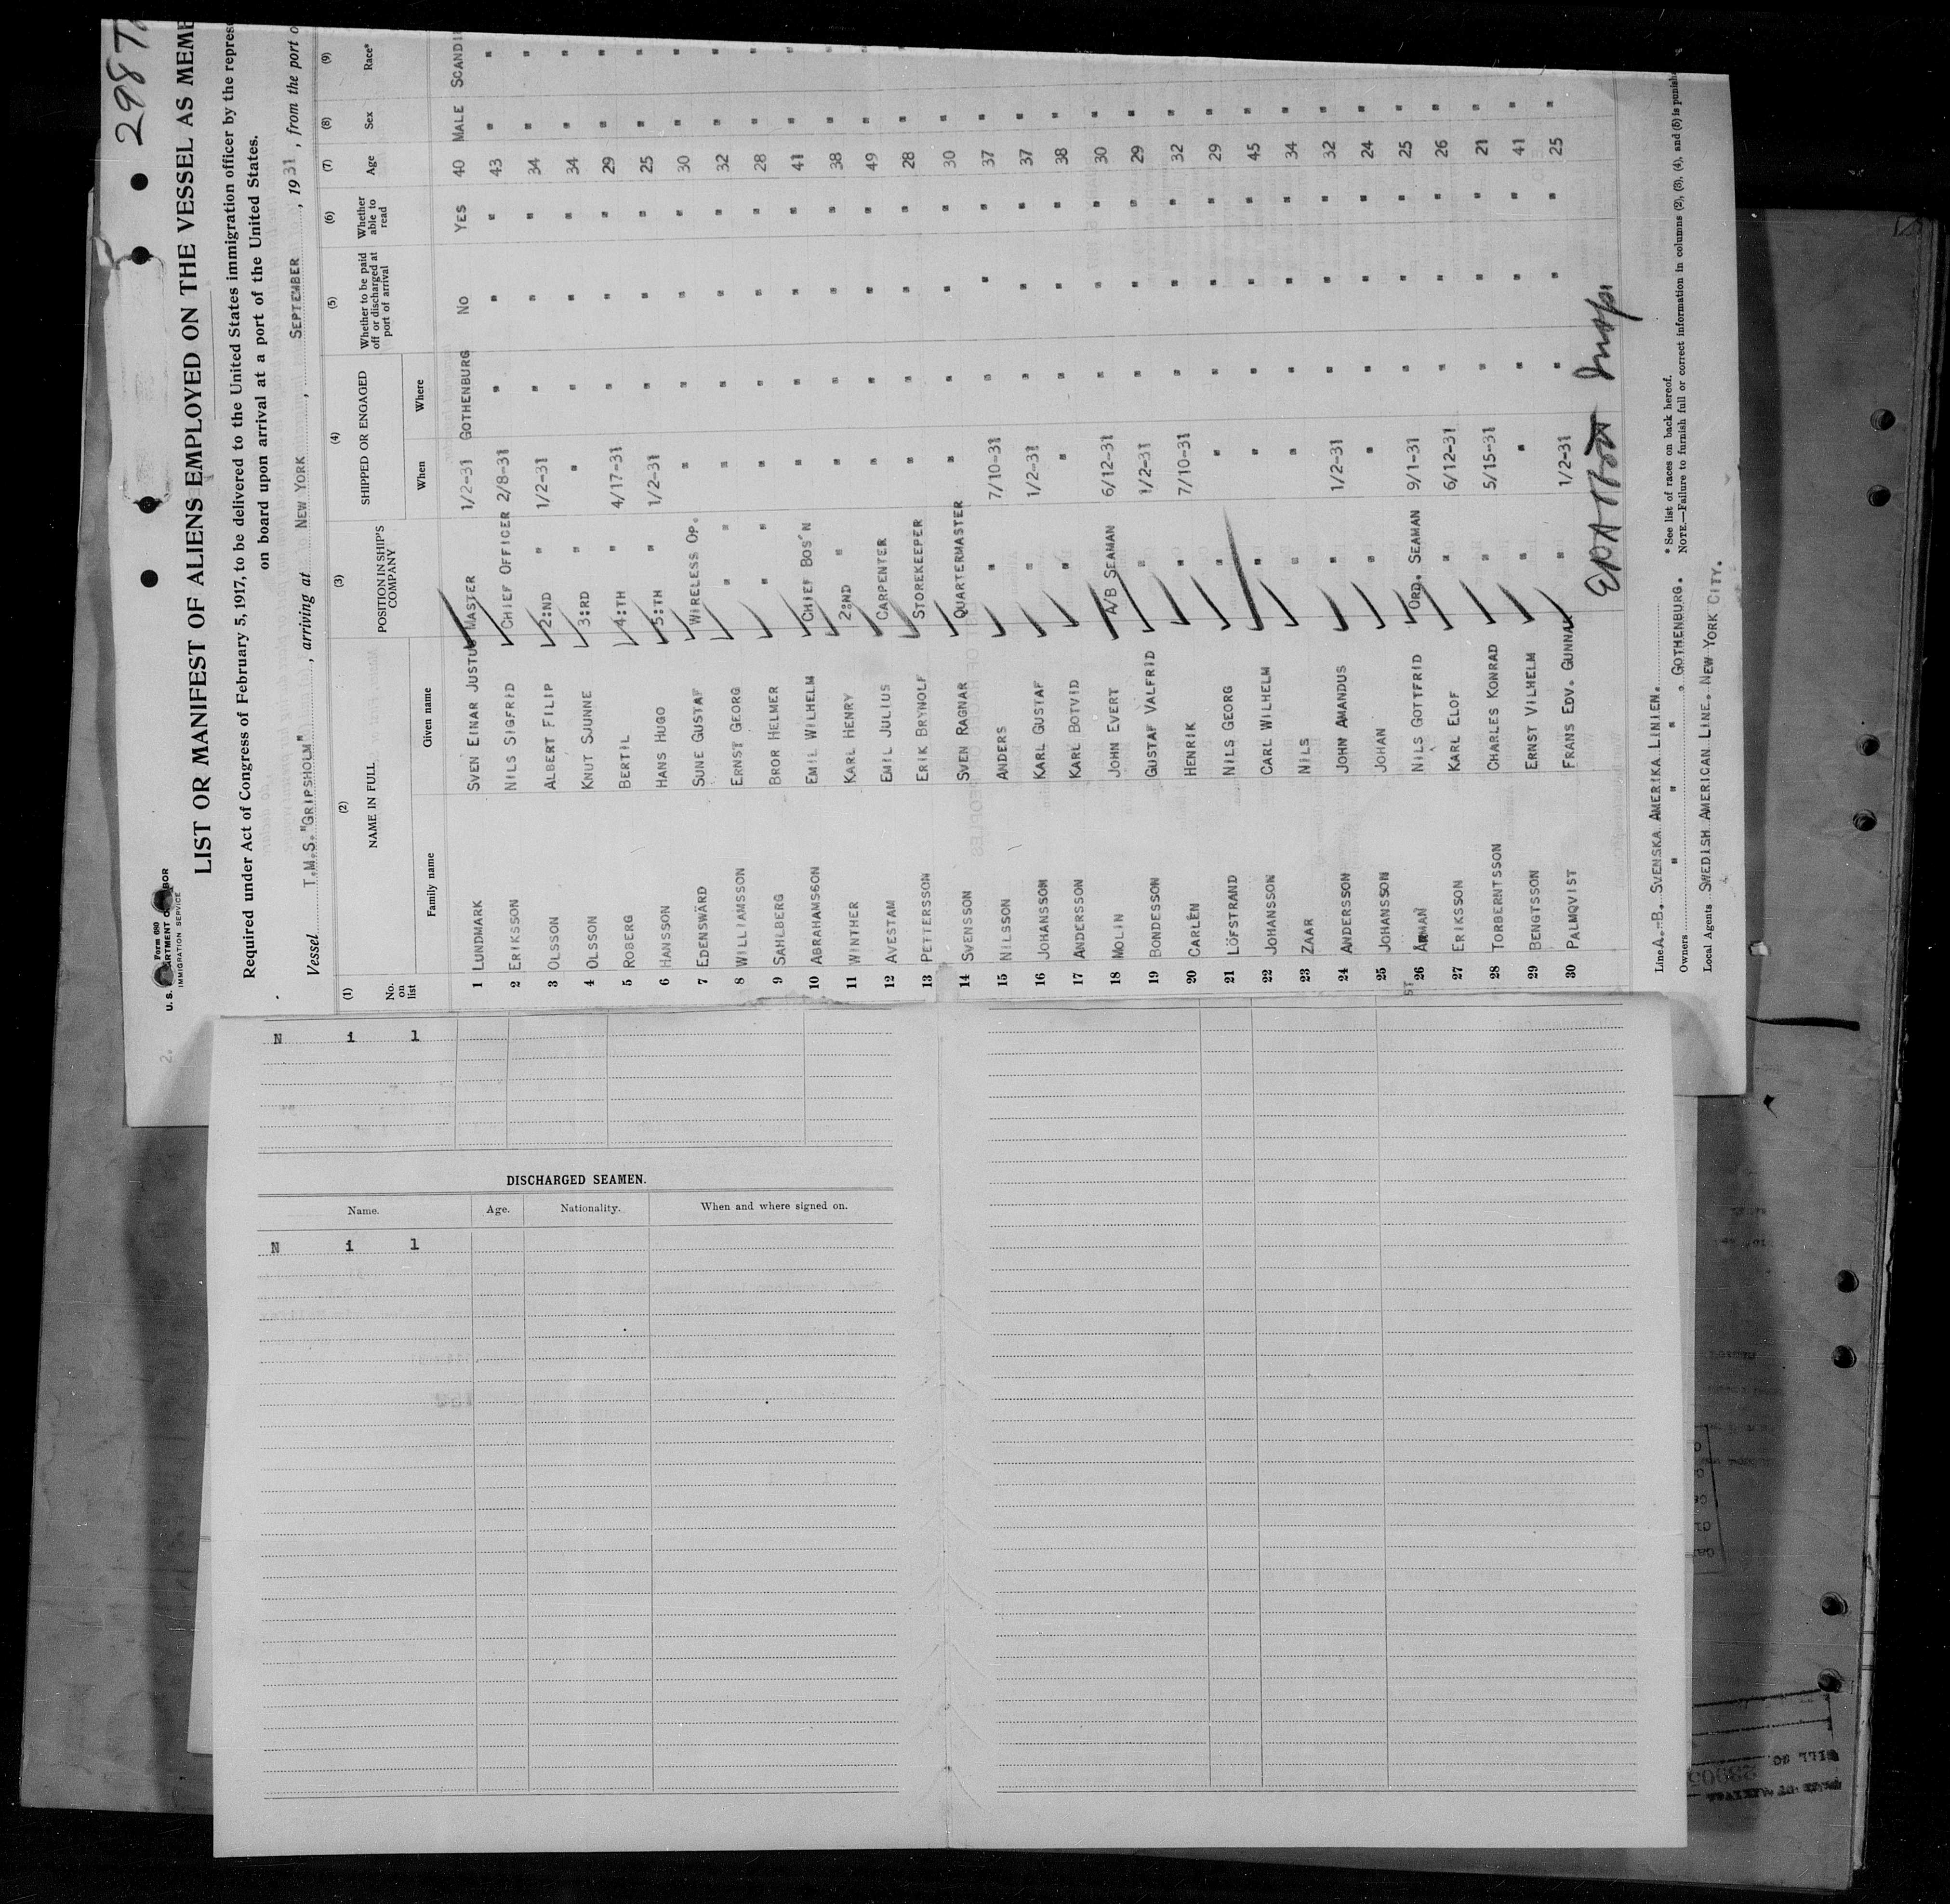 298
2.
U. S. Form 680
IMMIGRATION SERVICE
LIST OR MANIFEST OF ALIENS EMPLOYED ON THE VESSEL AS MEMB
Required under Act of Congress of February 5, 1917, to be delivered to the United States immigration officer by the repres
on board upon arrival at a port of the United States.
Vessel T.M.S. "GRIPSHOLM", arriving at NEW YORK, SEPTEMBER, 1931, from the port o
(1) (2) (3) (4) (5) (6) (7) (8) (9)
No. on list NAME IN FULL POSITION IN SHIP'S COMPANY SHIPPED OR ENGAGED Whether to be paid off or discharged at port of arrival Whether able to read Age Sex Race*
Family name Given name When Where
1 LUNDMARK SVEN EINAR JUSTUS MASTER 1/2-31 GOTHENBURG NO YES 40 MALE SCANDI
2 ERIKSSON NILS SIGFRID CHIEF OFFICER 2/8-31 " " " 43 " "
3 OLSSON ALBERT FILIP 2:ND " 1/2-31 " " " 34 " "
4 OLSSON KNUT SJUNNE 3:RD " " " " " 34 " "
5 ROBERG BERTIL 4:TH " 4/17-31 " " " 29 " "
6 HANSSON HANS HUGO 5:TH " 1/2-31 " " " 25 " "
7 EDENSWÄRD SUNE GUSTAF WIRELESS OP. " " " " 30 " "
8 WILLIAMSSON ERNST GEORG " " " " " " 32 " "
9 SAHLBERG BROR HELMER " " " " " " 28 " "
10 ABRAHAMSSON EMIL WILHELM CHIEF BOS'N " " " " 41 " "
11 WINTHER KARL HENRY 2:ND " " " " " 38 " "
12 AVESTAM EMIL JULIUS CARPENTER " " " " 49 " "
13 PETTERSSON ERIK BRYNOLF STOREKEEPER " " " " 28 " "
14 SVENSSON SVEN RAGNAR QUARTERMASTER " " " " 30 "
15 NILSSON ANDERS " 7/10-31 " " " 37 "
16 JOHANSSON KARL GUSTAF " 1/2-31 " " " 37 "
17 ANDERSSON KARL BOTVID " " " " " 38 "
18 MOLIN JOHN EVERT A/B SEAMAN 6/12-31 " " " 30 "
19 BONDESSON GUSTAF VALFRID " 1/2-31 " " " 29 "
20 CARLÉN HENRIK " 7/10-31 " " " 32 "
21 LÖFSTRAND NILS GEORG " " " " " 29 "
22 JOHANSSON CARL WILHELM " " " " " 45 "
23 ZAAR NILS " " " " " 34 "
24 ANDERSSON JOHN AMANDUS " 1/2-31 " " " 32 "
25 JOHANSSON JOHAN " " " " " 24 "
26 ÅRMAN NILS GOTTFRID ORD. SEAMAN 9/1-31 " " " 25 "
ST
27 ERIKSSON KARL ELOF " 6/12-31 " " " 26 "
28 TORBERNTSSON CHARLES KONRAD " 5/15-31 " " " 21 "
29 BENGTSSON ERNST VILHELM " " " " " 41 "
30 PALMQVIST FRANS EDV. GUNNAR " 1/2-31 " " " 25 "
Insp
Line A.-B. SVENSKA AMERIKA LINIEN.
Owners " " " , GOTHENBURG.
Local Agents SWEDISH AMERICAN LINE. NEW YORK CITY.
* See list of races on back hereof.
NOTE.—Failure to furnish full or correct information in columns (2), (3), (4), and (5) is punish
N i l
DISCHARGED SEAMEN.
Name. Age. Nationality. When and where signed on.
N i l